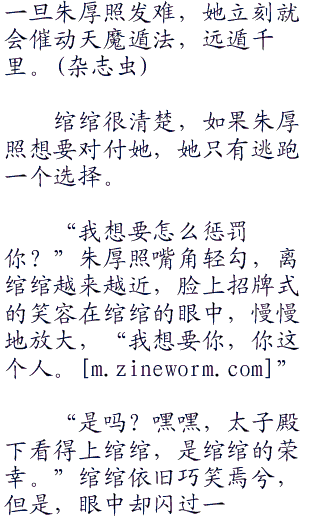 一旦朱厚照发难，她立刻就
会催动天魔遁法，远遁千
里。(杂志虫)
绾绾很清楚，如果朱厚
照想要对付她，她只有逃跑
一个选择。
“我想要怎么惩罚
你？”朱厚照嘴角轻勾，离
绾绾越来越近，脸上招牌式
的笑容在绾绾的眼中，慢慢
地放大，“我想要你，你这
个人。[m.zineworm.com]”
“是吗？嘿嘿，太子殿
下看得上绾绾，是绾绾的荣
幸。”绾绾依旧巧笑焉兮，
但是，眼中却闪过一